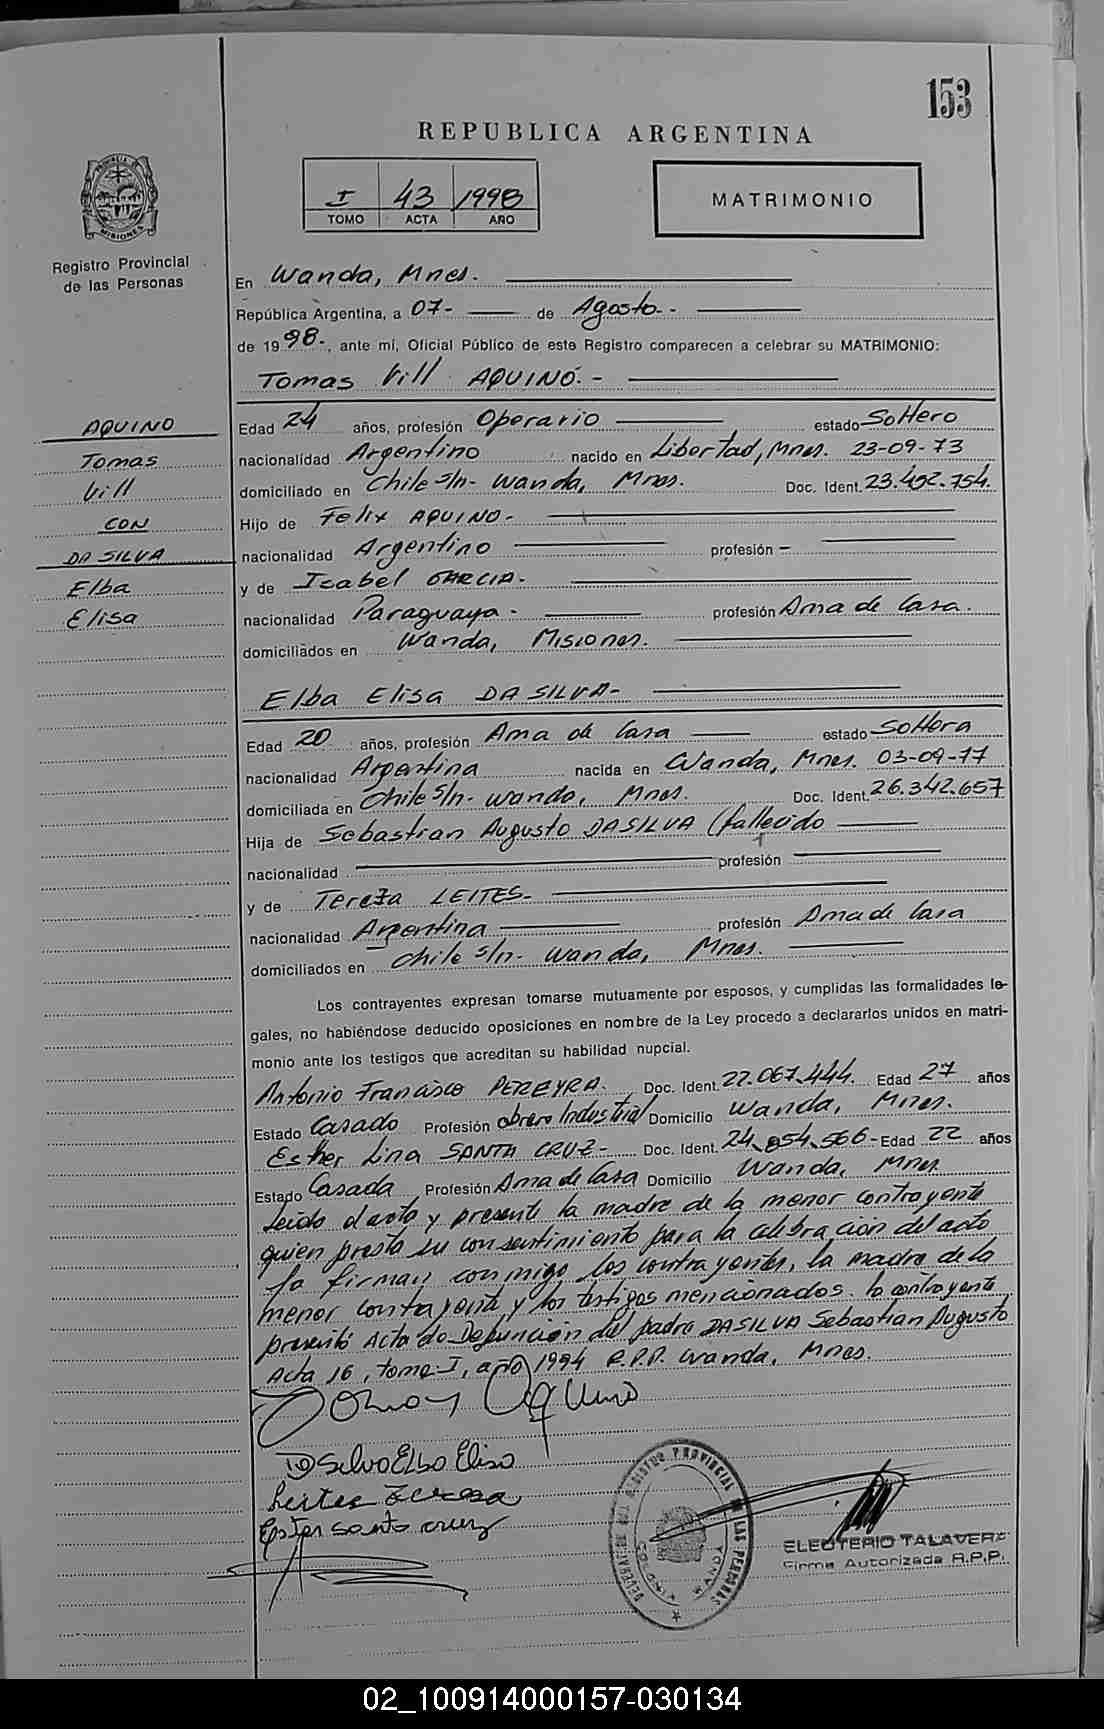 153
REPUBLICA ARGENTINA
I 43 1998
TOMO ACTA AÑO
MATRIMONIO
PROVINCIA DE MISIONES
Registro Provincial
de las Personas
En Wanda, Mnes.
República Argentina, a 07- de Agosto.-
de 1998-, ante mí, Oficial Público de este Registro comparecen a celebrar su MATRIMONIO:
Tomas Vill AQUINO.-
AQUINO
Tomas
Vill
CON
DA SILVA
Elba
Elisa
Edad 24 años, profesión Operario estado Soltero
nacionalidad Argentino nacido en Libertad, Mnes. 23-09-73
domiciliado en Chile S/n- Wanda, Mnes. Doc. Ident. 23.492.754.
Hijo de Felix AQUINO-
nacionalidad Argentino profesión -
y de Isabel GARCIA.
nacionalidad Paraguaya- profesión Ama de Casa.
domiciliados en Wanda, Misiones.
Elba Elisa DA SILVA-
Edad 20 años, profesión Ama de Casa estado Soltera
nacionalidad Argentina nacida en Wanda, Mnes. 03-09-77
domiciliada en Chile S/n- Wanda, Mnes. Doc. Ident. 26.342.657
Hija de Sebastian Augusto DA SILVA (fallecido
nacionalidad profesión
y de Tereza LEITES-
nacionalidad Argentina profesión Ama de Casa
domiciliados en Chile s/n- Wanda, Mnes.
Los contrayentes expresan tomarse mutuamente por esposos, y cumplidas las formalidades le-
gales, no habiéndose deducido oposiciones en nombre de la Ley procedo a declararlos unidos en matri-
monio ante los testigos que acreditan su habilidad nupcial.
Antonio Francisco PEREYRA. Doc. Ident. 22.067.444. Edad 27 años
Estado Casado Profesión Obrero Industrial Domicilio Wanda, Mnes.
Esther Lina SANTA CRUZ- Doc. Ident. 24.854.566- Edad 22 años
Estado Casada Profesión Ama de Casa Domicilio Wanda, Mnes
Leido el acto y presente la madre de la menor contrayente
quien presta su consentimiento para la celebración del acto
la firman conmigo los contrayentes, la madre de la
menor contrayente y los testigos mencionados. la contrayente
presentó Acta de Defunción del padre DA SILVA Sebastian Augusto
Acta 16, tomo-I, año 1994 R.P.P. Wanda, Mnes.
Tomas Aquino
D Silva Elba Elisa
Leites Tereza
Ester Santa cruz
REGISTRO PROVINCIAL DE LAS PERSONAS
WANDA
ELEUTERIO TALAVERA
Firma Autorizada R.P.P.
02_100914000157-030134